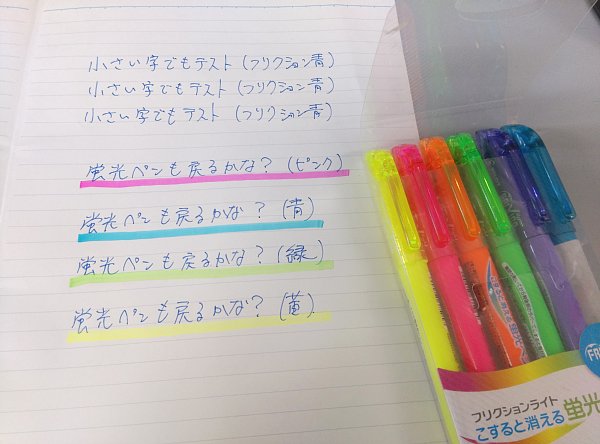 小さい字でもテスト(フリクション青)
小さい字でもテスト(フリクション青)
小さい字でもテスト(フリクション青)
蛍光ペンも戻るかな?(ピンク)
蛍光ペンも戻るかな?(青)
蛍光ペンも戻るかな?(緑)
蛍光ペンも戻るかな?(黄)
FR
フリクションライト
こすると消える蛍光